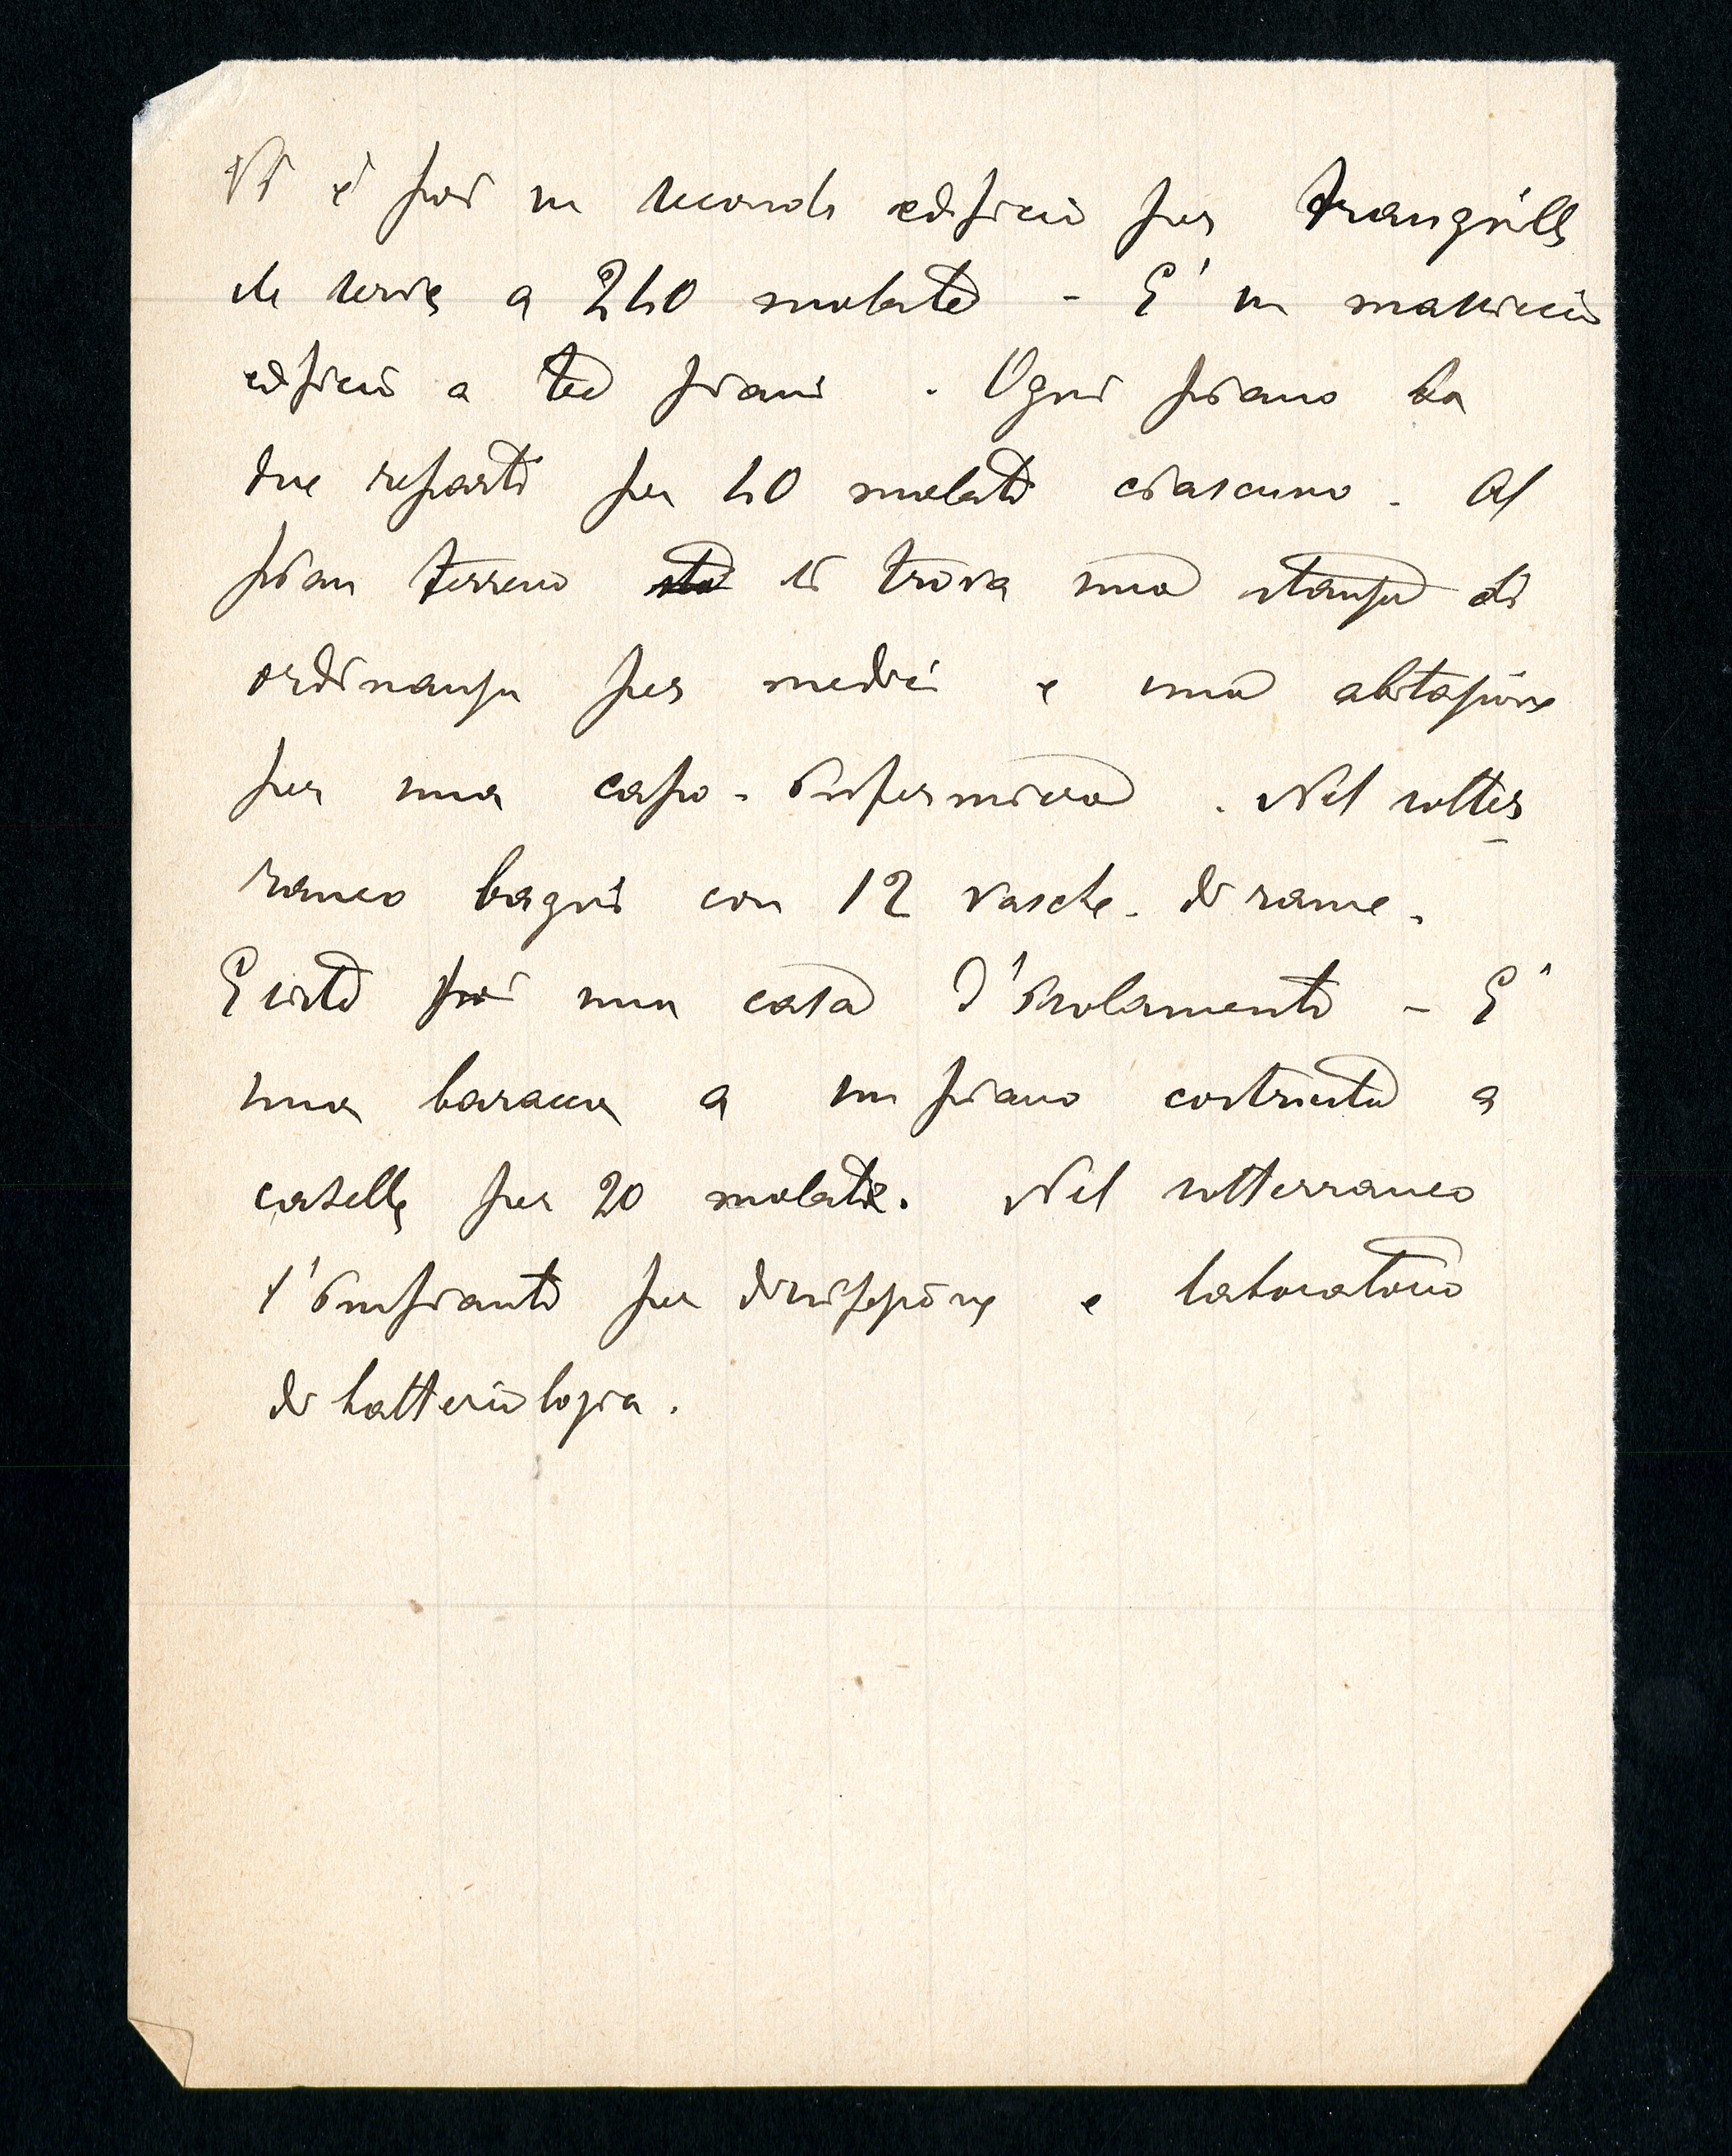 Vi è poi un secondo edificio per tranquille
che serve a 240 malate - E' un massiccio
edificio a tre piani . Ogni piano ha
due reparti per 40 malati ciascuno - Al
pian terreno si trova una stanza di
ordinanza per medici e una abitazione
per una capo-infermiera . Nel sotter
raneo bagni con 12 vasche di rame.
Esiste poi una casa d'isolamento - E'
una baracca a un piano costruita a
caselle per 20 malate. Nel sotterraneo
l'impianto per disinfezione e laboratorio
di batteriologia.